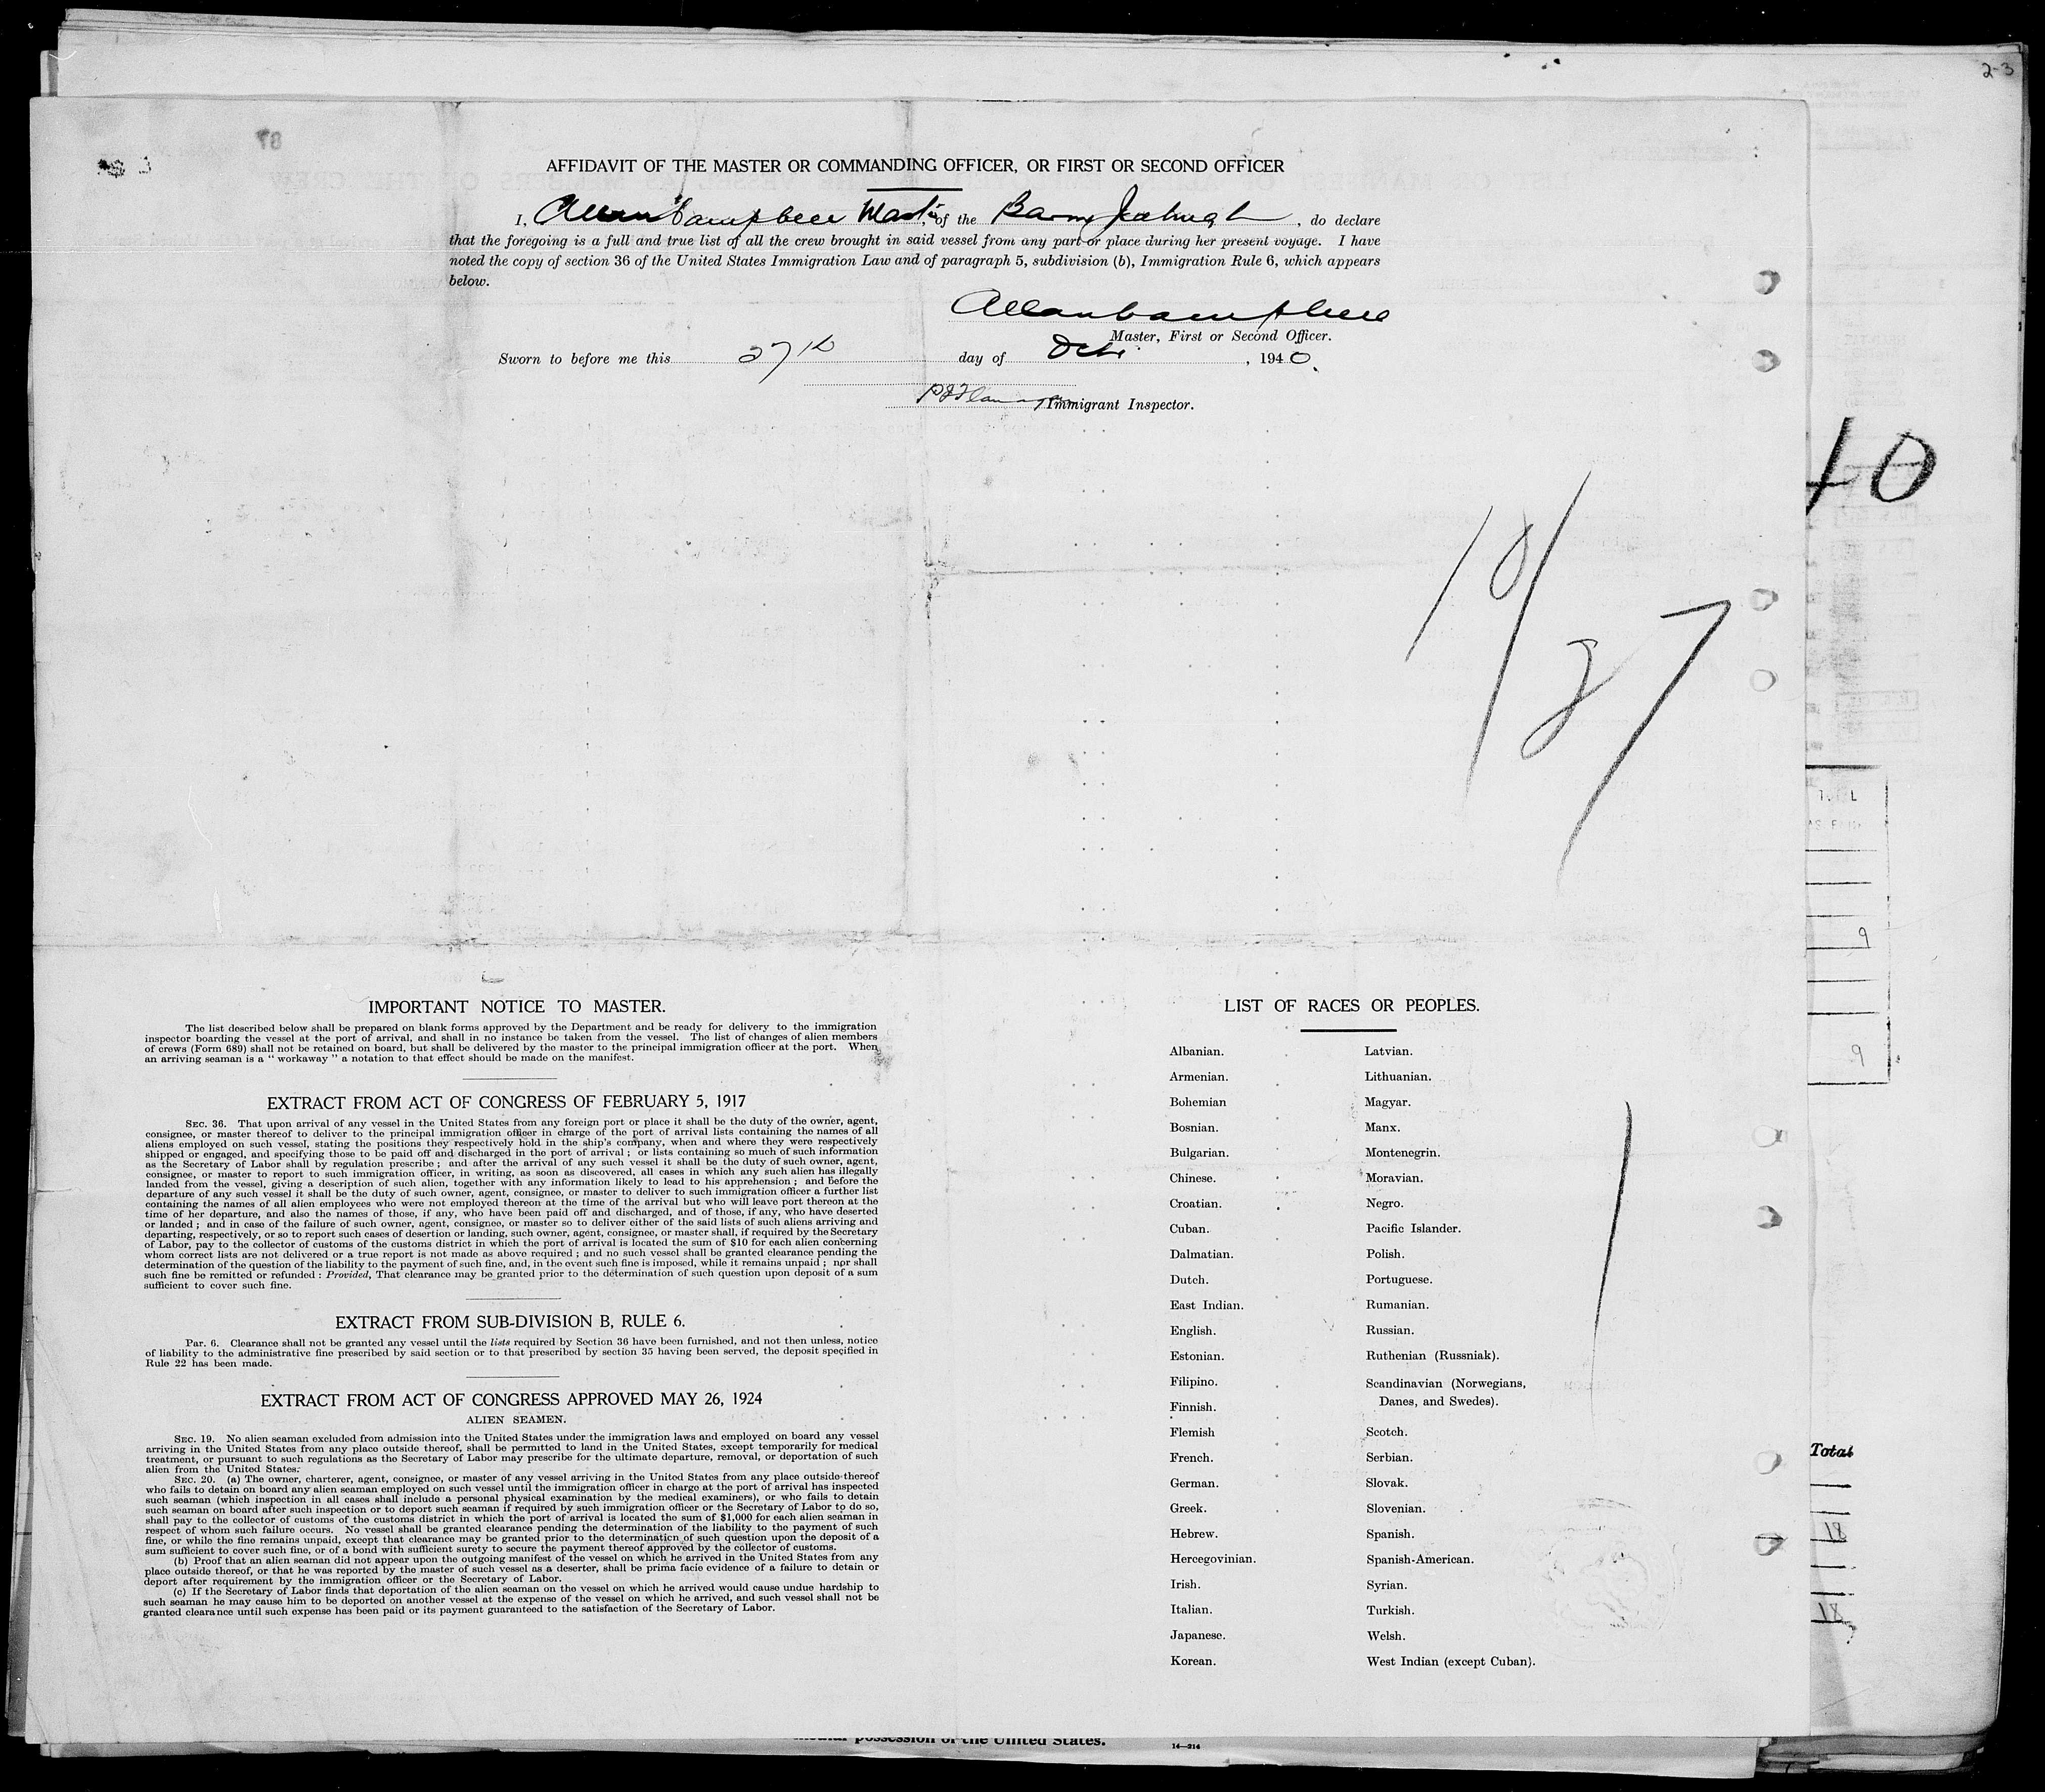 2-3
AFFIDAVIT OF THE MASTER OR COMMANDING OFFICER, OR FIRST OR SECOND OFFICER
I, Allan Campbell Master, of the , do declare
that the foregoing is a full and true list of all the crew brought in said vessel from any part or place during her present voyage. I have
noted the copy of section 36 of the United States Immigration Law and of paragraph 5, subdivision (b), Immigration Rule 6, which appears
below.
Allan Campbell
Master, First or Second Officer.
Sworn to before me this 27th day of Oct , 1940.
Immigrant Inspector.
10
10/27
IMPORTANT NOTICE TO MASTER.
The list described below shall be prepared on blank forms approved by the Department and be ready for delivery to the immigration
inspector boarding the vessel at the port of arrival, and shall in no instance be taken from the vessel. The list of changes of alien members
of crews (Form 689) shall not be retained on board, but shall be delivered by the master to the principal immigration officer at the port. When
an arriving seaman is a " workaway " a notation to that effect should be made on the manifest.
EXTRACT FROM ACT OF CONGRESS OF FEBRUARY 5, 1917
SEC. 36. That upon arrival of any vessel in the United States from any foreign port or place it shall be the duty of the owner, agent,
consignee, or master thereof to deliver to the principal immigration officer in charge of the port of arrival lists containing the names of all
aliens employed on such vessel, stating the positions they respectively hold in the ship's company, when and where they were respectively
shipped or engaged, and specifying those to be paid off and discharged in the port of arrival ; or lists containing so much of such information
as the Secretary of Labor shall by regulation prescribe ; and after the arrival of any such vessel it shall be the duty of such owner, agent,
consignee, or master to report to such immigration officer, in writing, as soon as discovered, all cases in which any such alien has illegally
landed from the vessel, giving a description of such alien, together with any information likely to lead to his apprehension ; and before the
departure of any such vessel it shall be the duty of such owner, agent, consignee, or master to deliver to such immigration officer a further list
containing the names of all alien employees who were not employed thereon at the time of the arrival but who will leave port thereon at the
time of her departure, and also the names of those, if any, who have been paid off and discharged, and of those, if any, who have deserted
or landed ; and in case of the failure of such owner, agent, consignee, or master so to deliver either of the said lists of such aliens arriving and
departing, respectively, or so to report such cases of desertion or landing, such owner, agent, consignee, or master shall, if required by the Secretary
of Labor, pay to the collector of customs of the customs district in which the port of arrival is located the sum of $10 for each alien concerning
whom correct lists are not delivered or a true report is not made as above required ; and no such vessel shall be granted clearance pending the
determination of the question of the liability to the payment of such fine, and, in the event such fine is imposed, while it remains unpaid ; nor shall
such fine be remitted or refunded : Provided, That clearance may be granted prior to the determination of such question upon deposit of a sum
sufficient to cover such fine.
EXTRACT FROM SUB-DIVISION B, RULE 6.
Par. 6. Clearance shall not be granted any vessel until the lists required by Section 36 have been furnished, and not then unless, notice
of liability to the administrative fine prescribed by said section or to that prescribed by section 35 having been served, the deposit specified in
Rule 22 has been made.
EXTRACT FROM ACT OF CONGRESS APPROVED MAY 26, 1924
ALIEN SEAMEN.
SEC. 19. No alien seaman excluded from admission into the United States under the immigration laws and employed on board any vessel
arriving in the United States from any place outside thereof, shall be permitted to land in the United States, except temporarily for medical
treatment, or pursuant to such regulations as the Secretary of Labor may prescribe for the ultimate departure, removal, or deportation of such
alien from the United States.
SEC. 20. (a) The owner, charterer, agent, consignee, or master of any vessel arriving in the United States from any place outside thereof
who fails to detain on board any alien seaman employed on such vessel until the immigration officer in charge at the port of arrival has inspected
such seaman (which inspection in all cases shall include a personal physical examination by the medical examiners), or who fails to detain
such seaman on board after such inspection or to deport such seaman if required by such immigration officer or the Secretary of Labor to do so,
shall pay to the collector of customs of the customs district in which the port of arrival is located the sum of $1,000 for each alien seaman in
respect of whom such failure occurs. No vessel shall be granted clearance pending the determination of the liability to the payment of such
fine, or while the fine remains unpaid, except that clearance may be granted prior to the determination of such question upon the deposit of a
sum sufficient to cover such fine, or of a bond with sufficient surety to secure the payment thereof approved by the collector of customs.
(b) Proof that an alien seaman did not appear upon the outgoing manifest of the vessel on which he arrived in the United States from any
place outside thereof, or that he was reported by the master of such vessel as a deserter, shall be prima facie evidence of a failure to detain or
deport after requirement by the immigration officer or the Secretary of Labor.
(c) If the Secretary of Labor finds that deportation of the alien seaman on the vessel on which he arrived would cause undue hardship to
such seaman he may cause him to be deported on another vessel at the expense of the vessel on which he arrived, and such vessel shall not be
granted clearance until such expense has been paid or its payment guaranteed to the satisfaction of the Secretary of Labor.
LIST OF RACES OR PEOPLES.
Albanian. Latvian.
Armenian. Lithuanian.
Bohemian Magyar.
Bosnian. Manx.
Bulgarian. Montenegrin.
Chinese. Moravian.
Croatian. Negro.
Cuban. Pacific Islander.
Dalmatian. Polish.
Dutch. Portuguese.
East Indian. Rumanian.
English. Russian.
Estonian. Ruthenian (Russniak).
Filipino. Scandinavian (Norwegians,
Danes, and Swedes).
Finnish.
Flemish Scotch.
French. Serbian.
German. Slovak.
Greek. Slovenian.
Hebrew. Spanish.
Hercegovinian. Spanish-American.
Irish. Syrian.
Italian. Turkish.
Japanese. Welsh.
Korean. West Indian (except Cuban).
9
9
Total
18
18
possession of the United States.
14—214